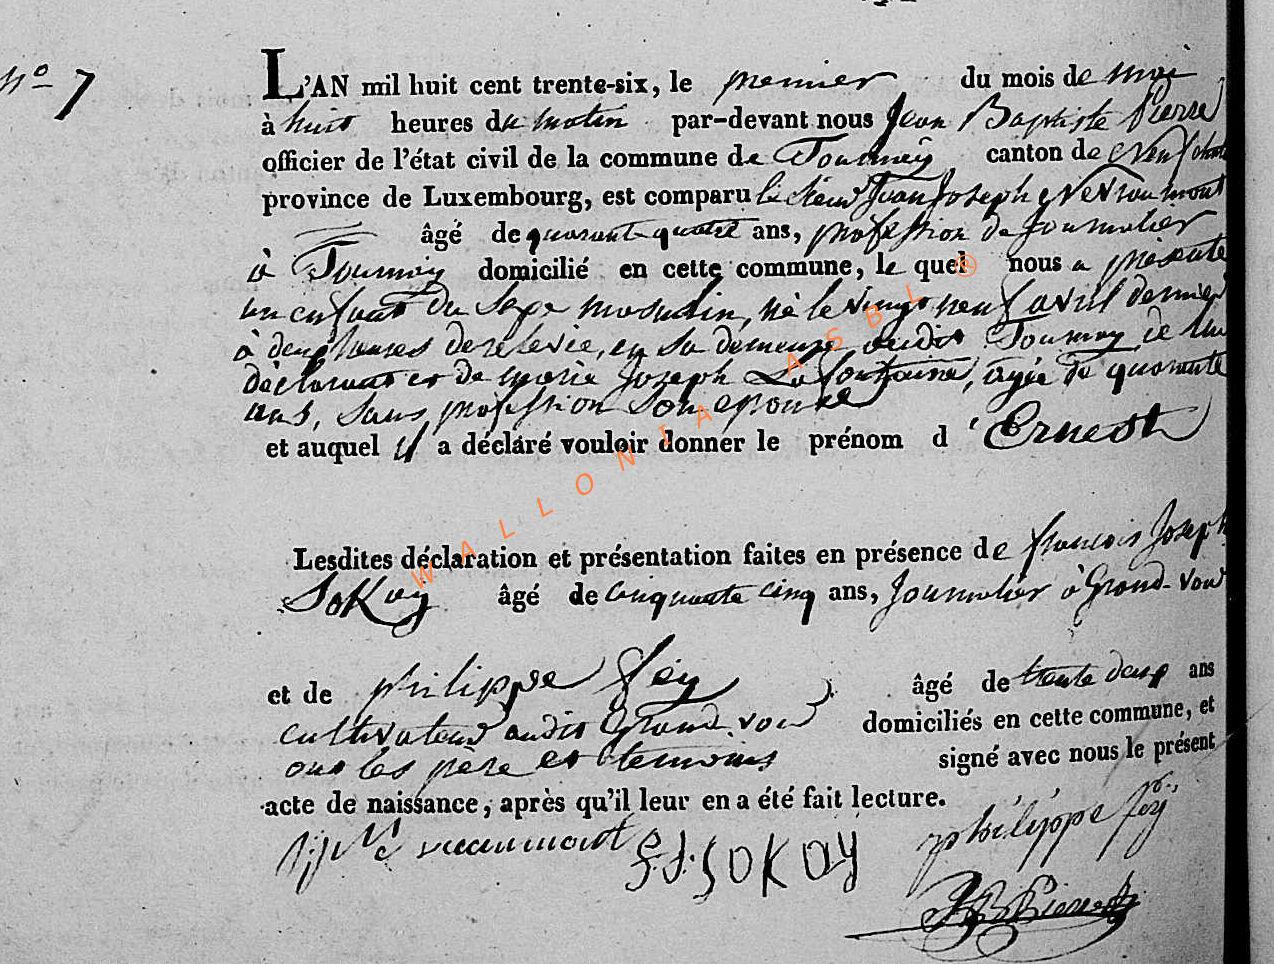 No 7
L'AN mil huit cent trente-six, le premier du mois de mai
à huit heures du matin par-devant nous Jean Baptiste Pierre
officier de l'état civil de la commune de Tournay canton de Neufchat
province de Luxembourg, est comparu le sieur Jean Joseph
âgé de quarante quatre ans, profession de Journalier
à Tournay domicilié en cette commune, le quel nous a présenté
un enfant du sexe masculin, né le vingt neuf avril dernier
à deux heures de relevée, en sa demeure audit Tournay de lui
déclarant et de Marie Joseph Lafontaine, agée de quarante
ans, sans profession son epouse
et auquel il a déclaré vouloir donner le prénom d'Ernest
Lesdites déclaration et présentation faites en présence de françois Joseph
Sokay âgé de cinquante cinq ans, Journalier à Grand-vou
et de philippe féy âgé de trente deux ans
cultivateur audit Grand-vou domiciliés en cette commune, et
ont les père et temoins signé avec nous le présent
acte de naissance, après qu'il leur en a été fait lecture.
SOKAY philippe féy
JB Pierre
WALLONIA ASBL ®